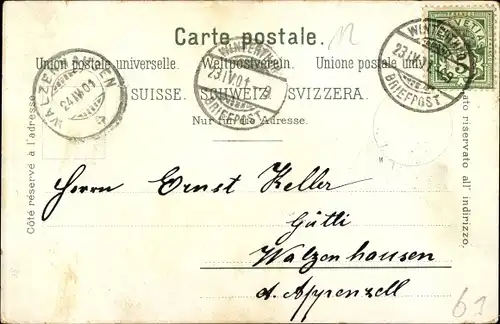 Carte postale.
Union postale universelle. Weltpostverein. Unione postale universale
SUISSE. SCHWEIZ. SVIZZERA.
Nur für die Adresse.
Côté réservé à l'adresse.
Lato riservato all' indirizzo.
WALZENHAUSEN
24.IV.01
WINTERTHUR
23.IV.01
BRIEFPOST
WINTERTHUR
23.IV.01
BRIEFPOST
HELVETIA
12
Herrn Ernst Keller
Gütli
Walzenhausen
d. Appenzell
61